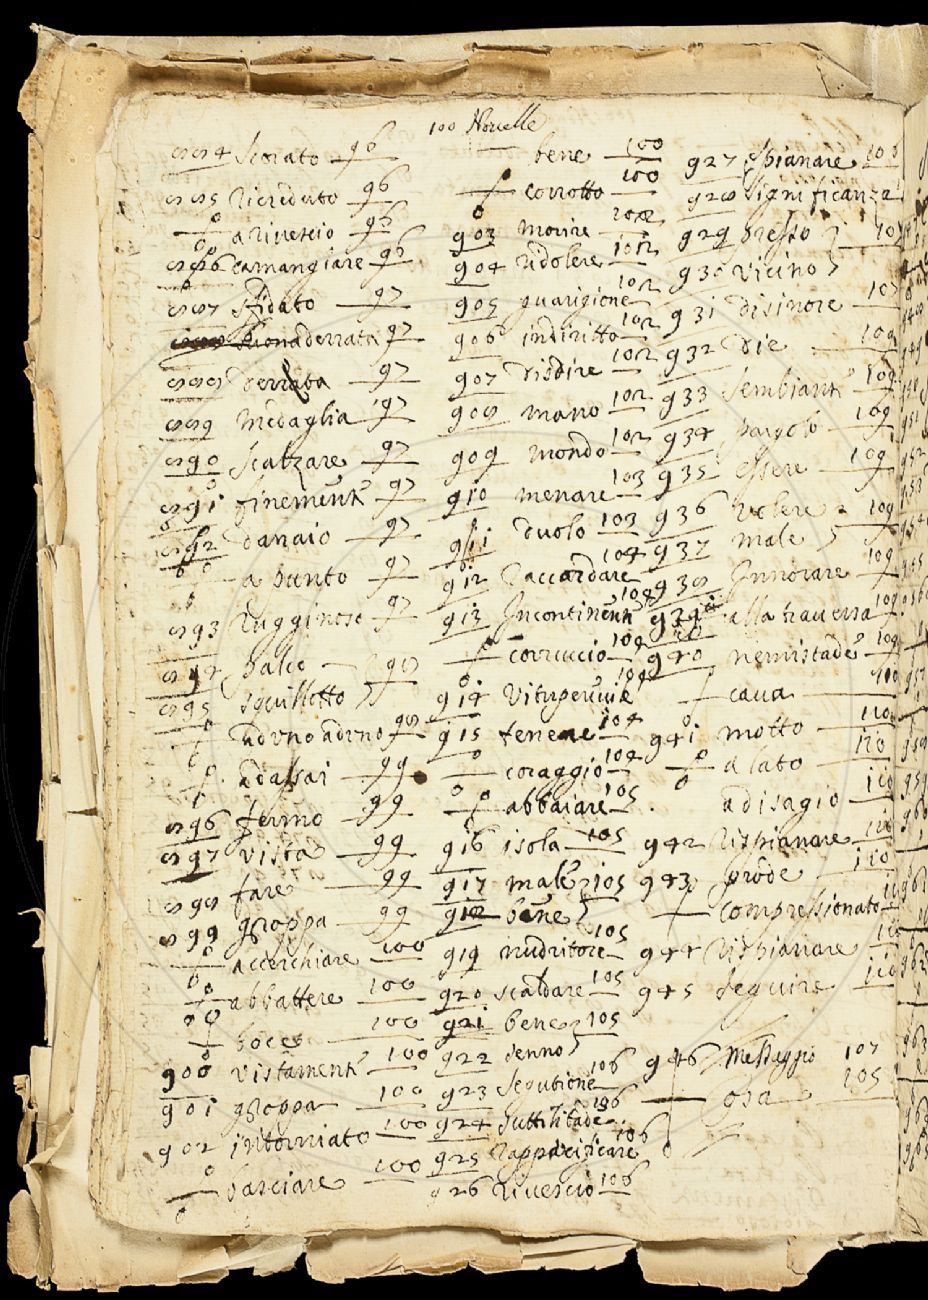 100 Nouelle
884 scorato 96
885 ricreduto 96
a riuercio 96
886 camangiare 96
887 sfidato 97
derrata 97
888 derrata 97
889 medaglia 97
890 scalzare 97
891 finement 97
892 danaio 97
a punto 97
893 rugginoso 97
894 palco
895 squilletto 98
ad vno ad vno 98
ad assai 99
896 fermo 99
897 vista 99
898 fare 99
899 groppa 99
accerchiare 100
abbattere 100
boce 100
900 vistament 100
901 groppa 100
902 intorniato 100
basciare 100
bene 100
corrotto 100
903 morire 102
904 ridolere 102
905 guarigione 102
906 indiritto 102
907 disdire 102
908 mano 102
909 mondo 102
910 menare 103
911 duolo 103
912 raccordare 104
913 Incontinent 104
corruccio 104
914 vituperuile 104
915 tenere 104
coraggio 104
abbaiare 105
916 isola 105
917 male 105
918 bene
919 nudritore 105
920 scaldare 105
921 bene 105
922 senno
923 segutione 106
924 suttilitade 106
925 rappacificare 106
926 riuercio 106
927 spianare 106
928 significanza
929 presso 107
930 vicino
931 disinore 107
932 die 109
933 sembiant 109
934 pargolo 109
935 essere 109
936 volere 109
937 male
938 Innorare 109
939 alla trauersa 109
940 nemistade 109
caua 110
941 motto 110
a lato 110
a disagio 110
942 rispianare 110
943 prode 110
compressionato 110
944 rispianare 110
945 seguire 110
946 Messaggio 107
osa 105